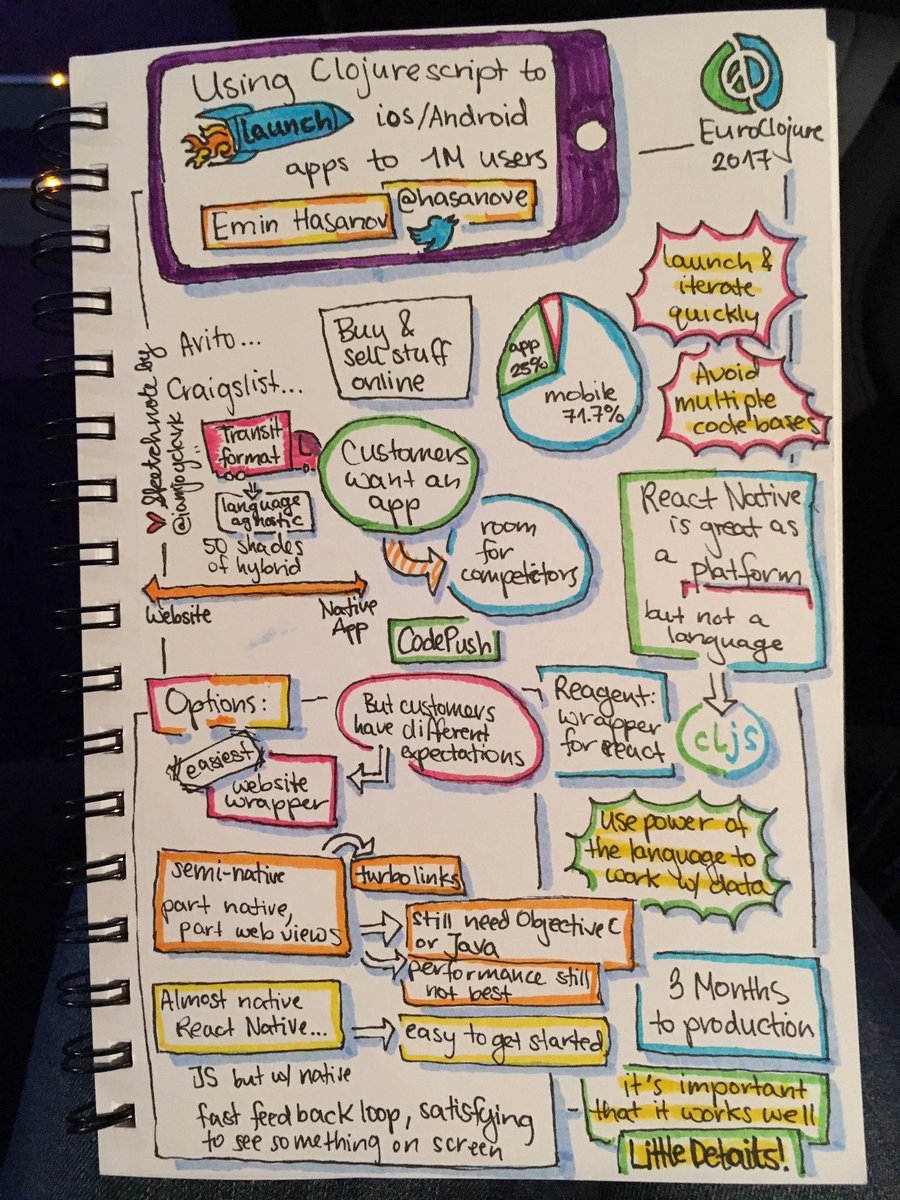 Using Clojurescript to
launch ios/Android
apps to 1M users
Emin Hasanov
@hasanove
EuroClojure
2017
launch &
iterate
quickly
Avoid
multiple
code bases
Avito...
Craigslist...
Buy &
sell stuff
online
app
25%
mobile
71.7%
Sketchnote by
@iamjogclark
Transit
format
language
agnostic
50 shades
of hybrid
Website
Native
App
Customers
want an
app
room
for
competitors
CodePush
React Native
is great as
a platform
but not a
language
cljs
Options:
But customers
have different
expectations
Reagent:
wrapper
for react
easiest
website
wrapper
use power of
the language to
work w/ data
semi-native
part native,
part web views
turbolinks
still need Objective C
or Java
performance still
not best
3 Months
to production
Almost native
React Native...
easy to get started
JS but w/ native
fast feedback loop, satisfying
to see something on screen
it's important
that it works well
Little Details!